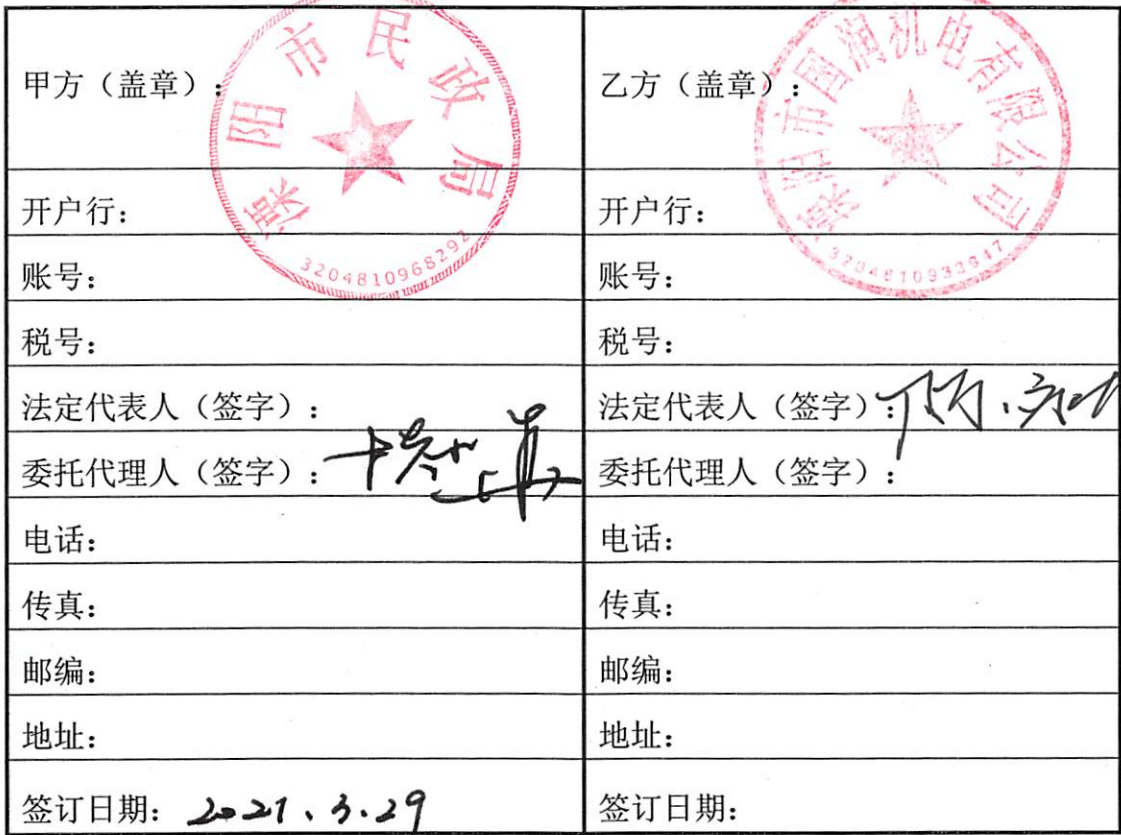 甲方（盖章）：
溧阳市民政局
3204810968292
乙方（盖章）：
溧阳市国润机电有限公司
3204810933947
开户行：
开户行：
账号：
账号：
税号：
税号：
法定代表人（签字）：
法定代表人（签字）：
委托代理人（签字）：
委托代理人（签字）：
电话：
电话：
传真：
传真：
邮编：
邮编：
地址：
地址：
签订日期：2021.3.29
签订日期：